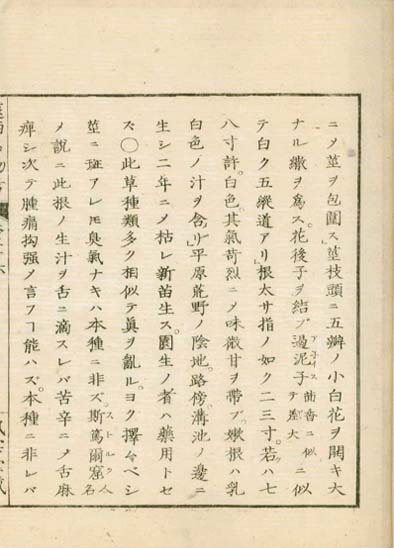 ニメ莖ヲ包圍ス莖枝頭ニ五瓣ノ小白花ヲ開キ大
ナル繖ヲ爲ス。花後子ヲ結ブ過泥子 茴香ニ似テ大ニ似
テ白ク五縱道アリ根大サ指ノ如ク二三寸。若ハ七
八寸許。白色其氣苛烈ニメ味微甘ヲ帶ブ嫩根ハ乳
白色ノ汁ヲ含リ平原荒野ノ陰地。路傍。溝池ノ邊ニ
生シ二年ニメ枯レ新苗生ス。園生ノ者ハ藥用トセ
ズ〇此草種類多ク相似テ眞ヲ亂ル。ヨク擇ムベシ
莖ニ斑アレ𪜈臭氣ナキハ本種ニ非ズ。斯篤爾窟 人名
ストルク
ノ說ニ此根ノ生汁ヲ舌ニ滴スレバ苦辛ニメ舌麻
痺シ次テ腫痛拘强メ言フヿ能ハズ。本種ニ非レバ